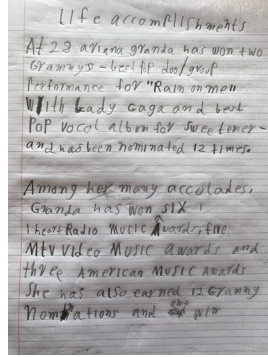 Life accomplishments
At 28 ariana granda has won two
Grammys - best pop duo/group
Performance for "Rain on me"
With Lady Gaga and best
Pop vocal album for sweetener -
and has been nominated 12 times.
Among her many accolades,
Granda has won SIX
I heart Radio Music Awards, five
Mtv Video Music awards and
three American Music Awards
She has also earned 12 Grammy
Nominations and one win